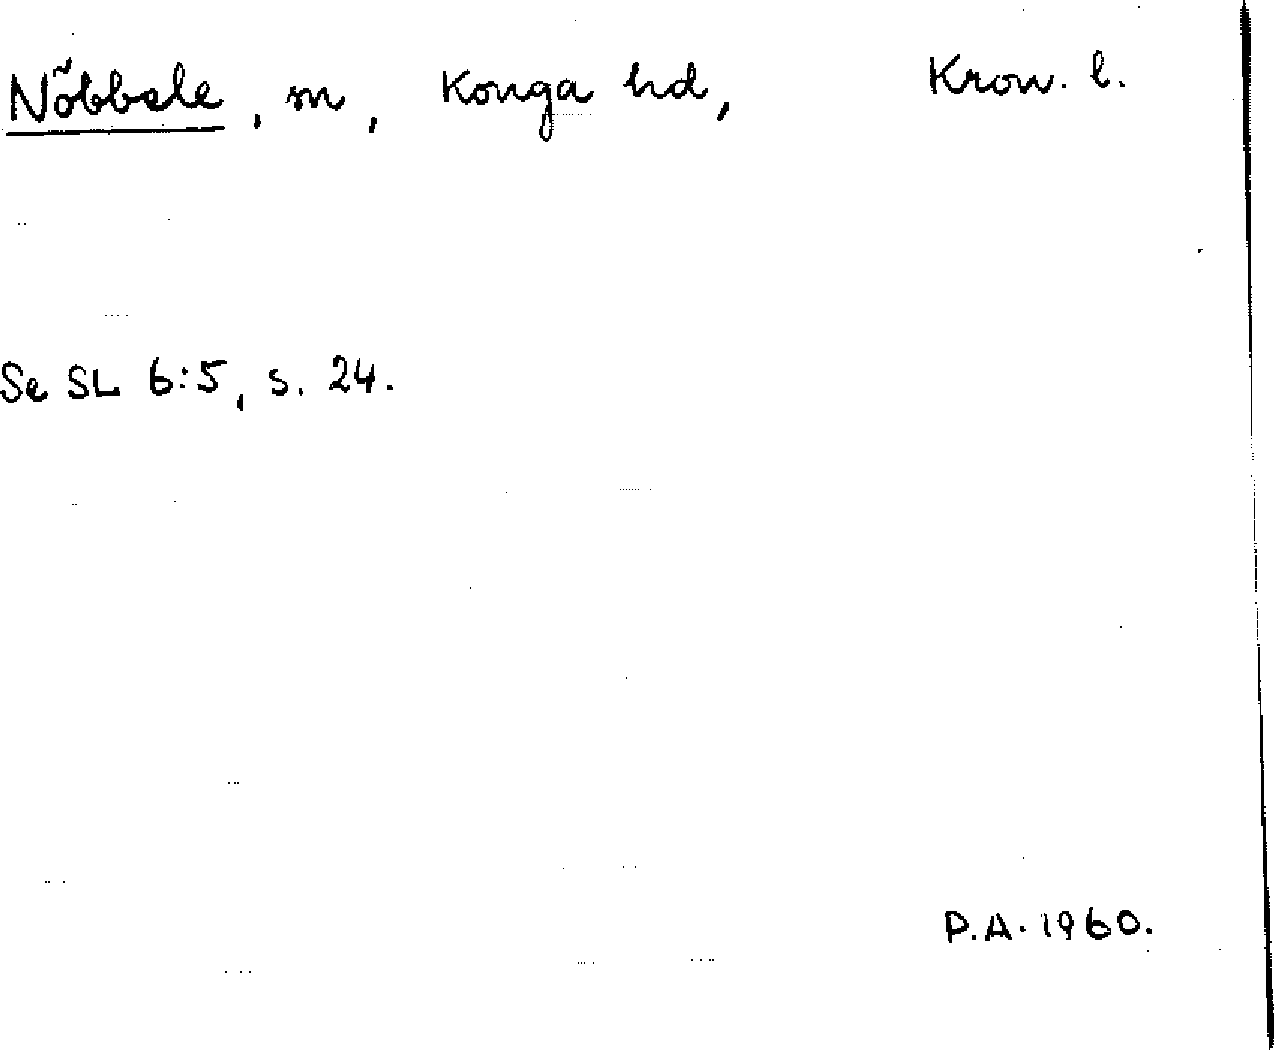 Nöbbele, m, Konga hd, Kron. l.
Se SL 6:5, s. 24.
P.A. 1960.